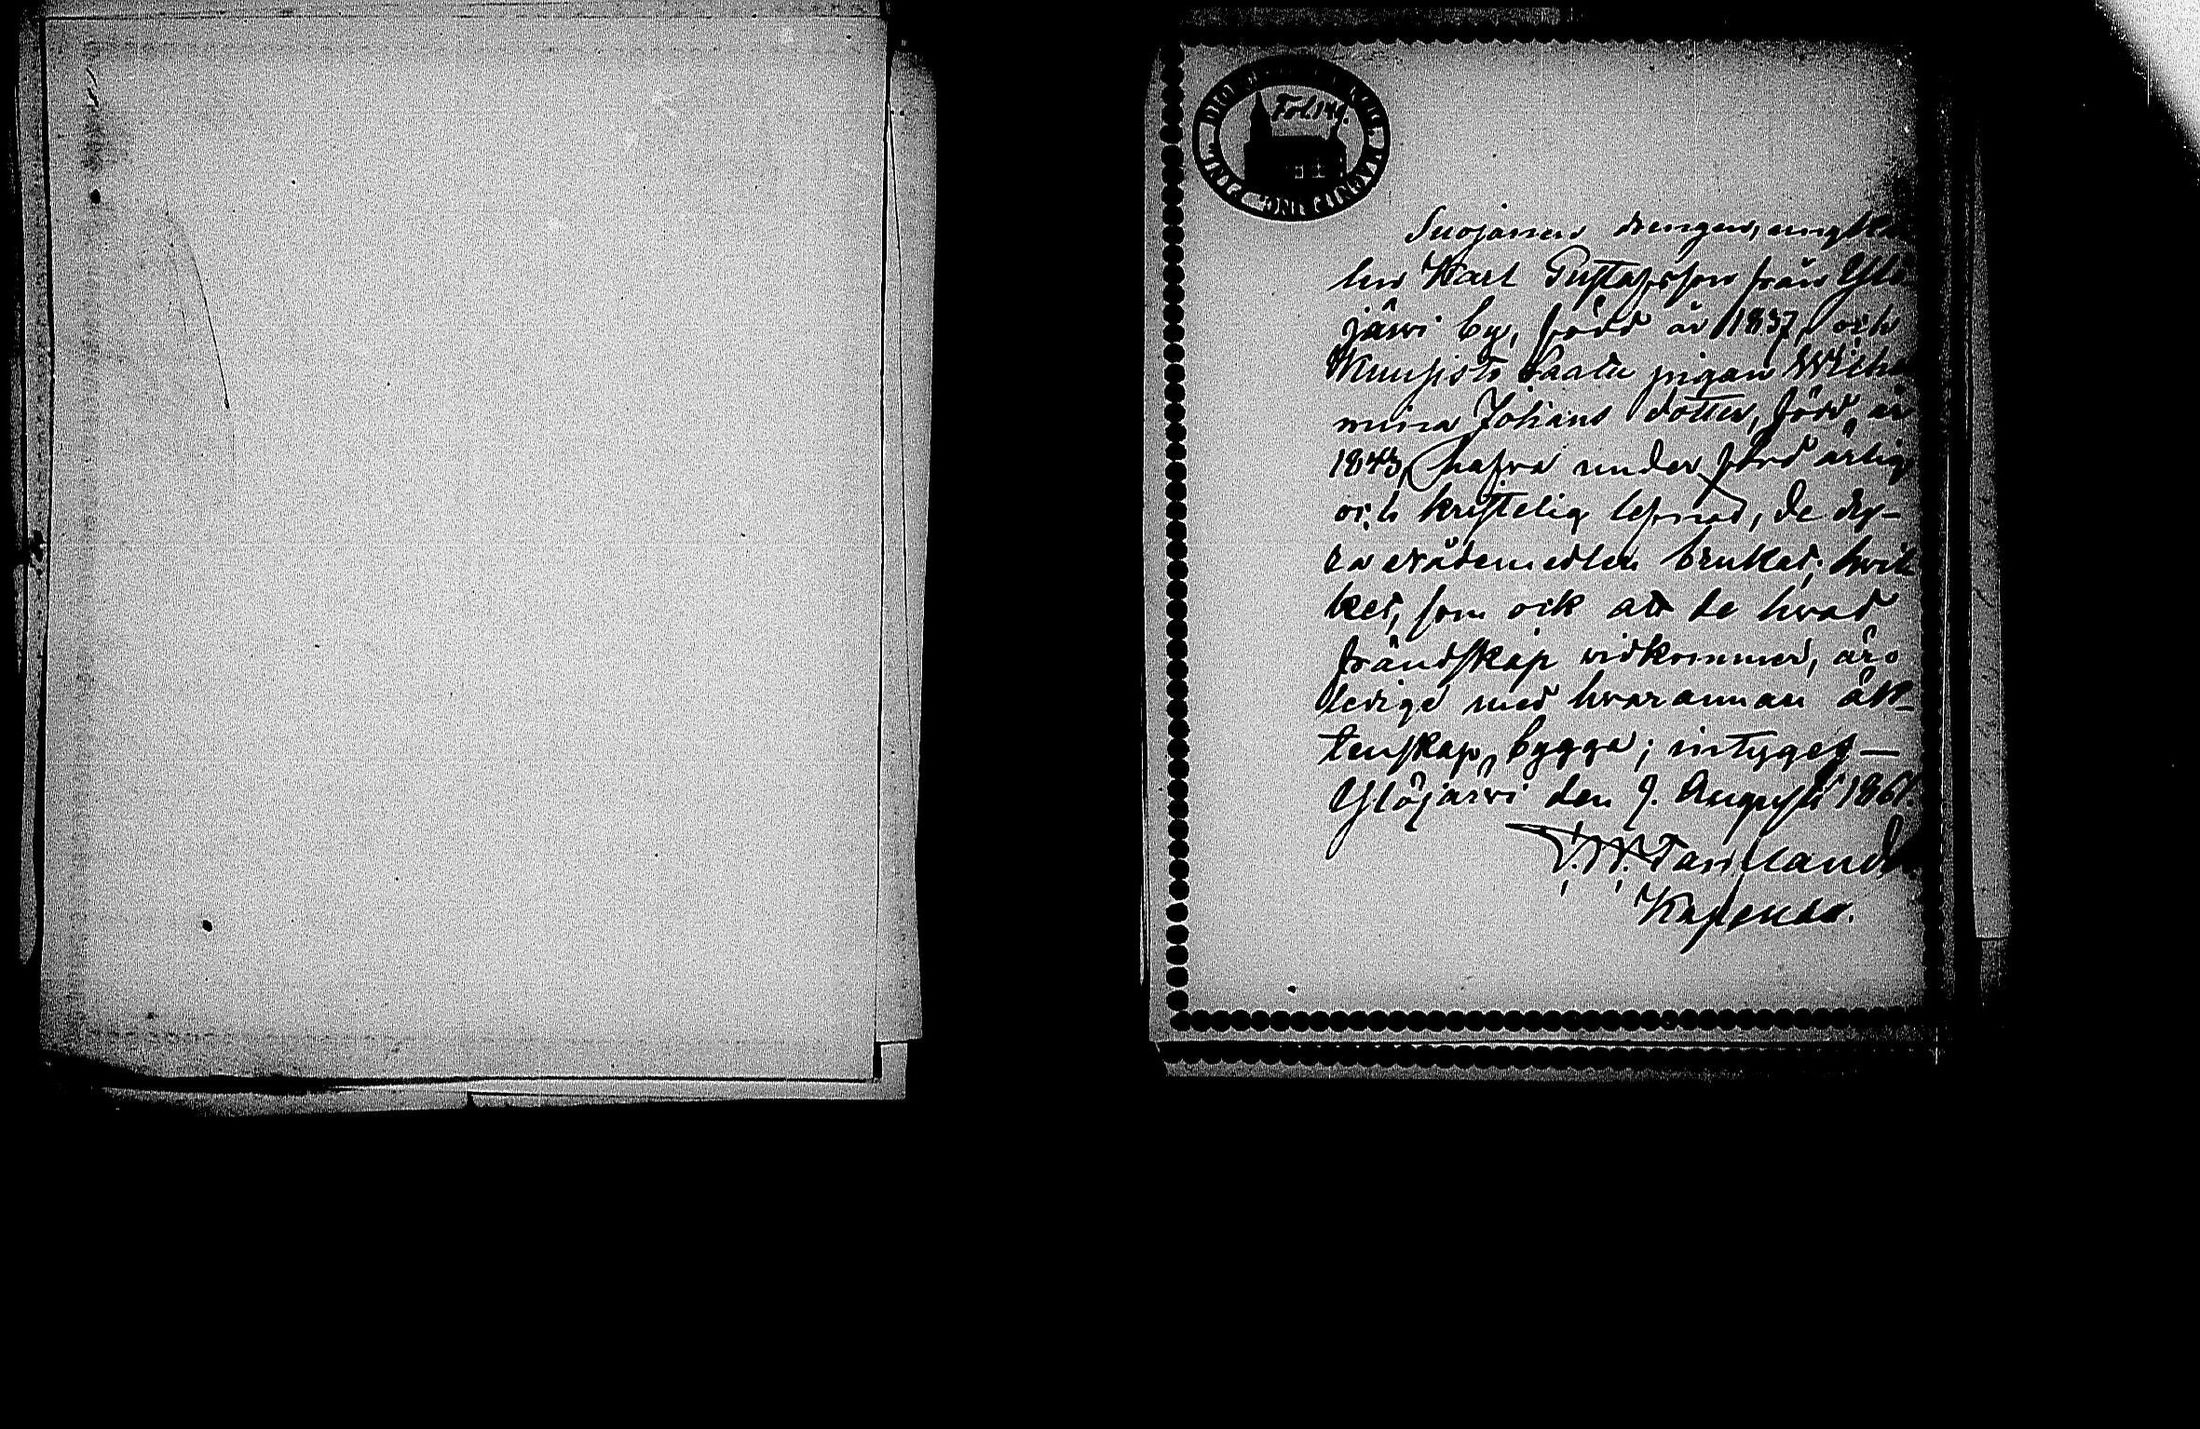 Fol. 149.
Suojanen drengen, ungkar
len Karl Gustafsson från Ylö
järvi by, född år 1837, och
Kuusisto Saala pigan Wilhel
mina Johans dotter, född år
1843, hafva under förd ärlig
och kristelig lefnad, de dy-
ra nådemedlen brukat; hvil
ket, som ock at de hvad
frändskap vidkommer, äro
ledige med hvarannan äk-
tenskap bygga; intygas —
Ylöjärvi den 9. Augusti 1861.
Kapellan.